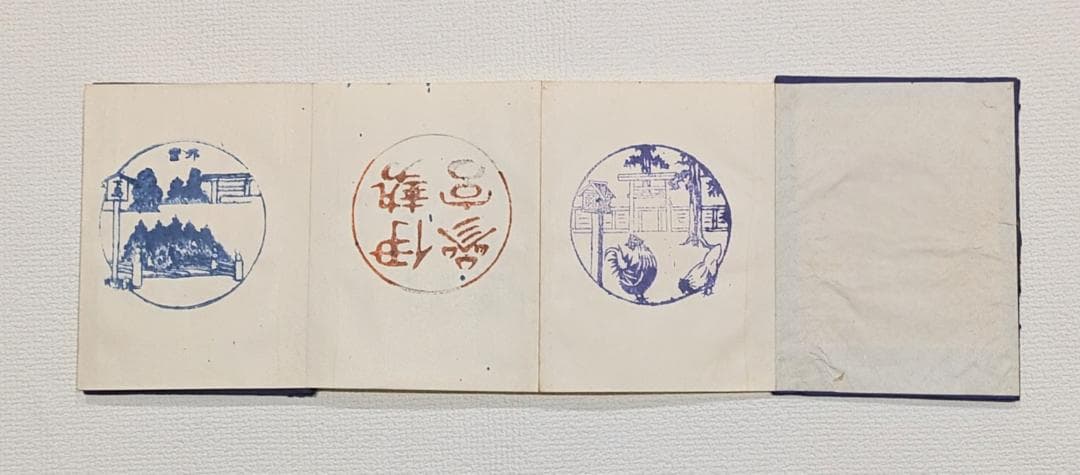 外宮
伊勢
參宮